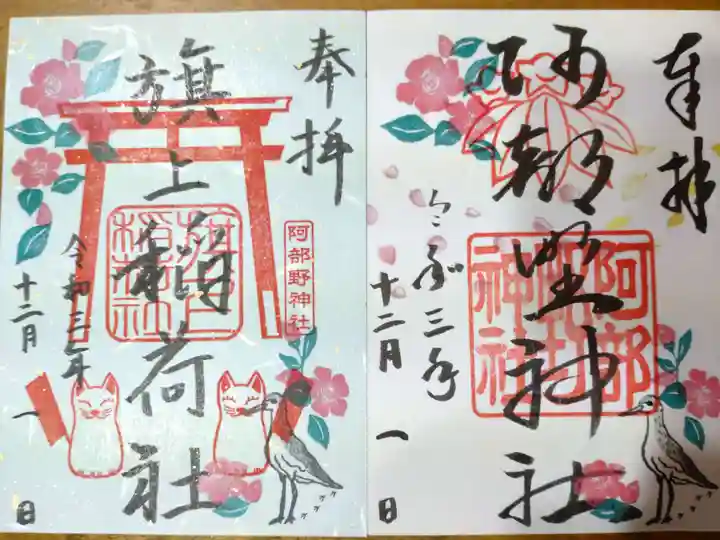 奉拝
阿部埜神社
阿部
神社
令和三年
十二月一日
奉拝
阿部野神社
旗上稲荷社
令和三年
十二月一日